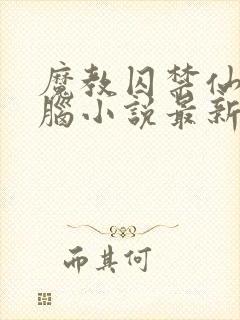 魔教囚禁仙
脑小说最新
而其何